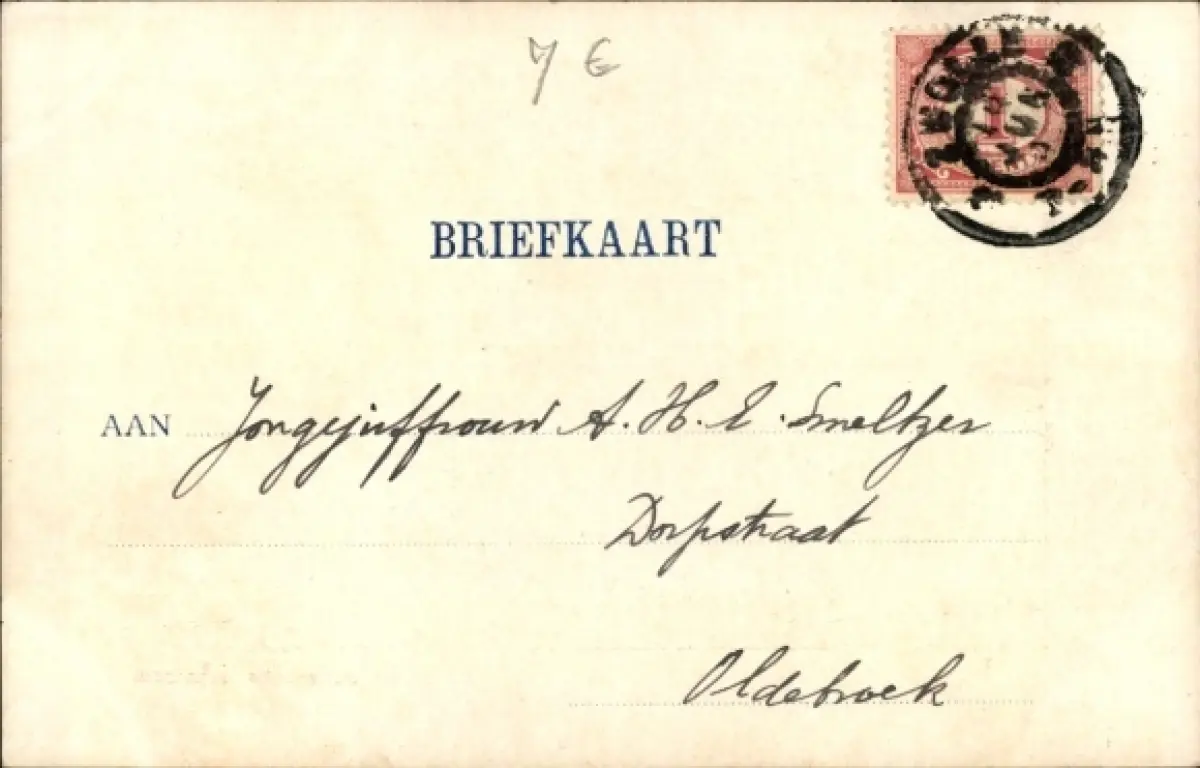 7 €
ZWOLLE
1
BRIEFKAART
AAN Jongejuffrouw A. H. E. Smeltzer
Dorpstraat
Oldebroek